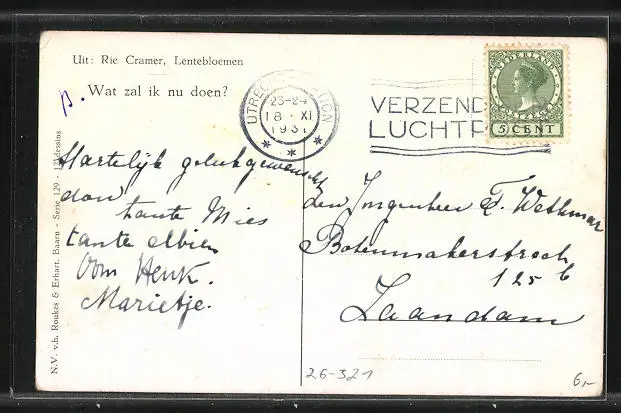 Uit: Rie Cramer, Lentebloemen
Wat zal ik nu doen?
N.V. v.h. Roukes & Erhart. Baarn - Serie 129 - dessins
UTRECHT STATION
23-24
18 · XI
1931
VERZEND
LUCHTP
NEDERLAND
5 CENT
Hartelijk gelukgewenscht
tante Mies
tante
Oom Henk.
Marietje.
Den Jongenheer F.
125 b
Zaandam
26-321
6,-